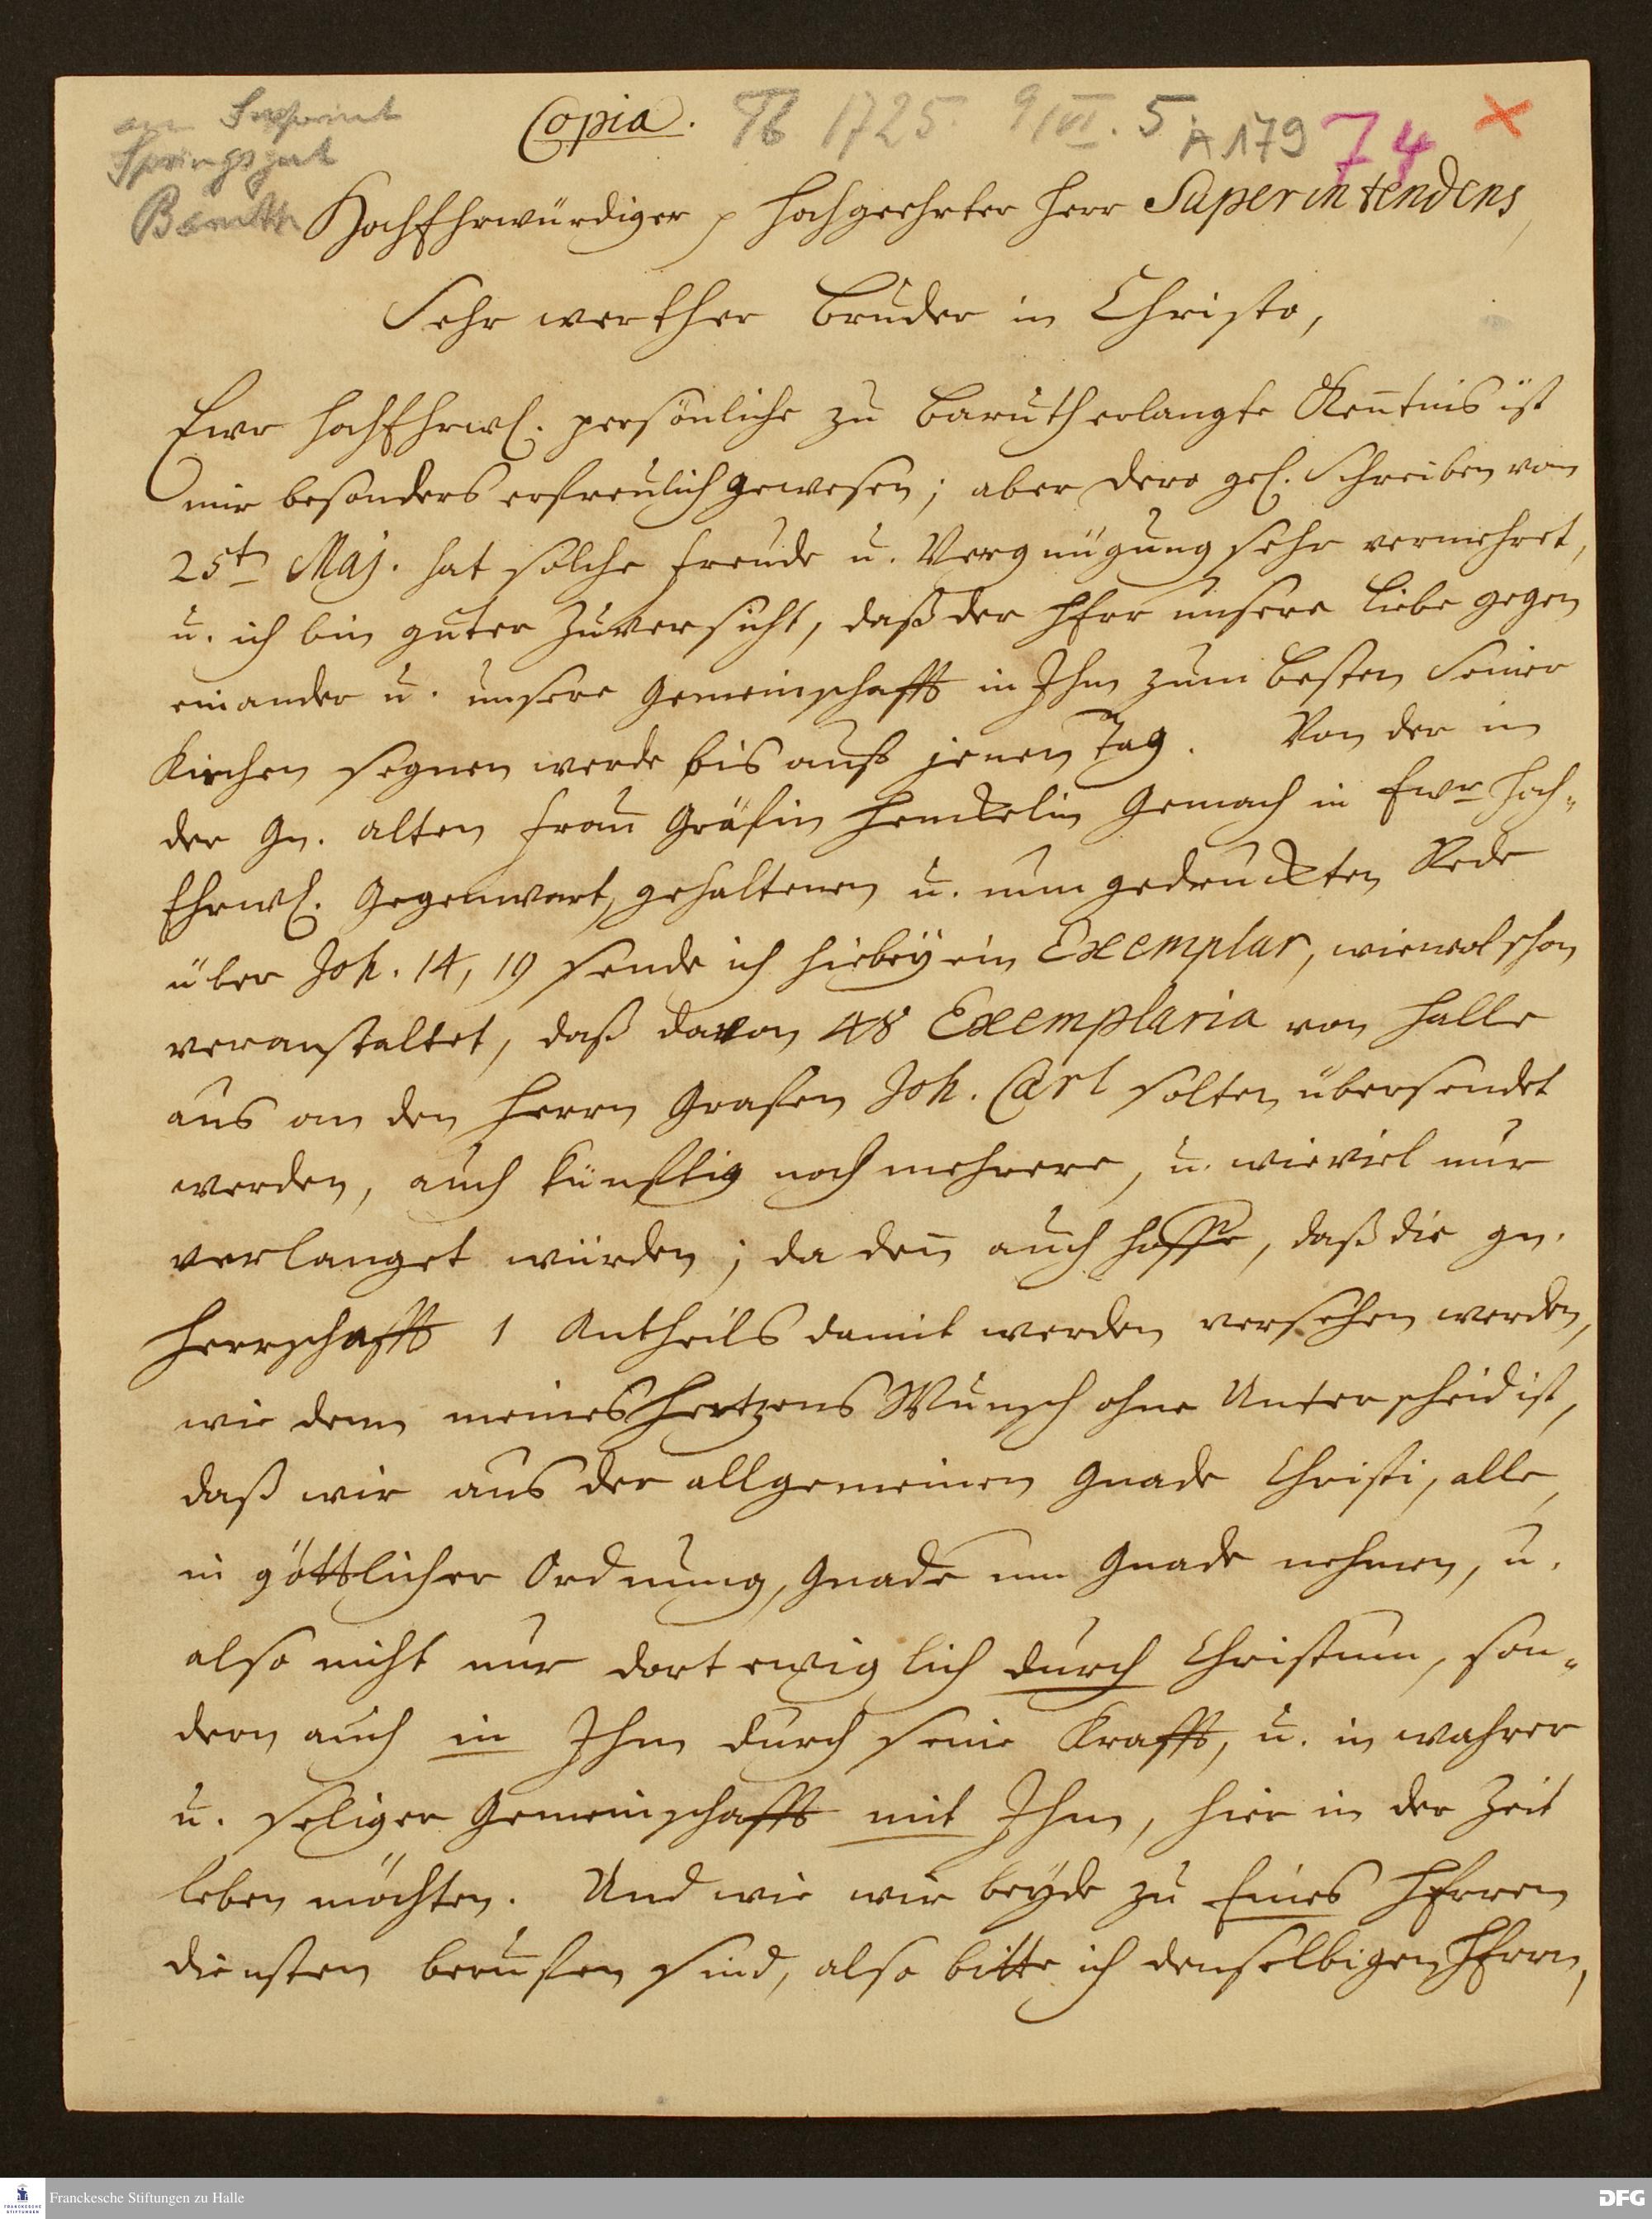 an Superint
Springsgut
Baruth
Copia. Tb 1725. 9/VI. 5 A 179 74
HochEhrwürdiger p hochgeehrter Herr Superintendens,
Sehr werther Bruder in Christo,
Ewr HochEhrwl. persönliche zu Baruth erlangte Kentnis ist
mir besonders erfreulich gewesen; aber dero gel. Schreiben vom
25tn Maj. hat solche Freude u. Vergnügung sehr vermehret,
u. ich bin guter Zuversicht, daß der HErr unsere Liebe gegen
einander u. unsere Gemeinschafft in Ihm zum besten Seiner
Kirchen segnen werde bis auf jenen Tag. Von der in
der Gn. alten Frau Gräfin Henckelin Gemach in Ewr Hoch-
Ehrwl. Gegenwart, gehaltenen u. nun gedruckten Rede
über Joh. 14, 19 sende ich hiebey ein Exemplar, wiewol schon
veranstaltet, daß davon 48 Exemplaria von Halle
aus an den Herrn Grafen Joh. Carl solten übersendet
werden, auch künftig noch mehrere, u. wieviel nur
verlanget würden; da den auch hoffe, daß die gn.
Herrschafft 1 Antheils damit werden versehen werden,
wie denn meines Hertzens Wunsch ohne Unterscheid ist,
daß wir aus der allgemeinen Gnade Christi, alle,
in göttlicher Ordnung, Gnade um Gnade nehmen, u.
also nicht nur dort ewiglich durch Christum, son-
dern auch in Ihm durch seine Krafft, u. in wahrer
u. seliger Gemeinschafft mit Ihm, hier in der Zeit
leben möchten. Und wie wir beyde zu Eines HErren
diensten beruffen sind, also bitte ich denselbigen HErrn,
Franckesche Stiftungen zu Halle
FRANCKESCHE
STIFTUNGEN
DFG